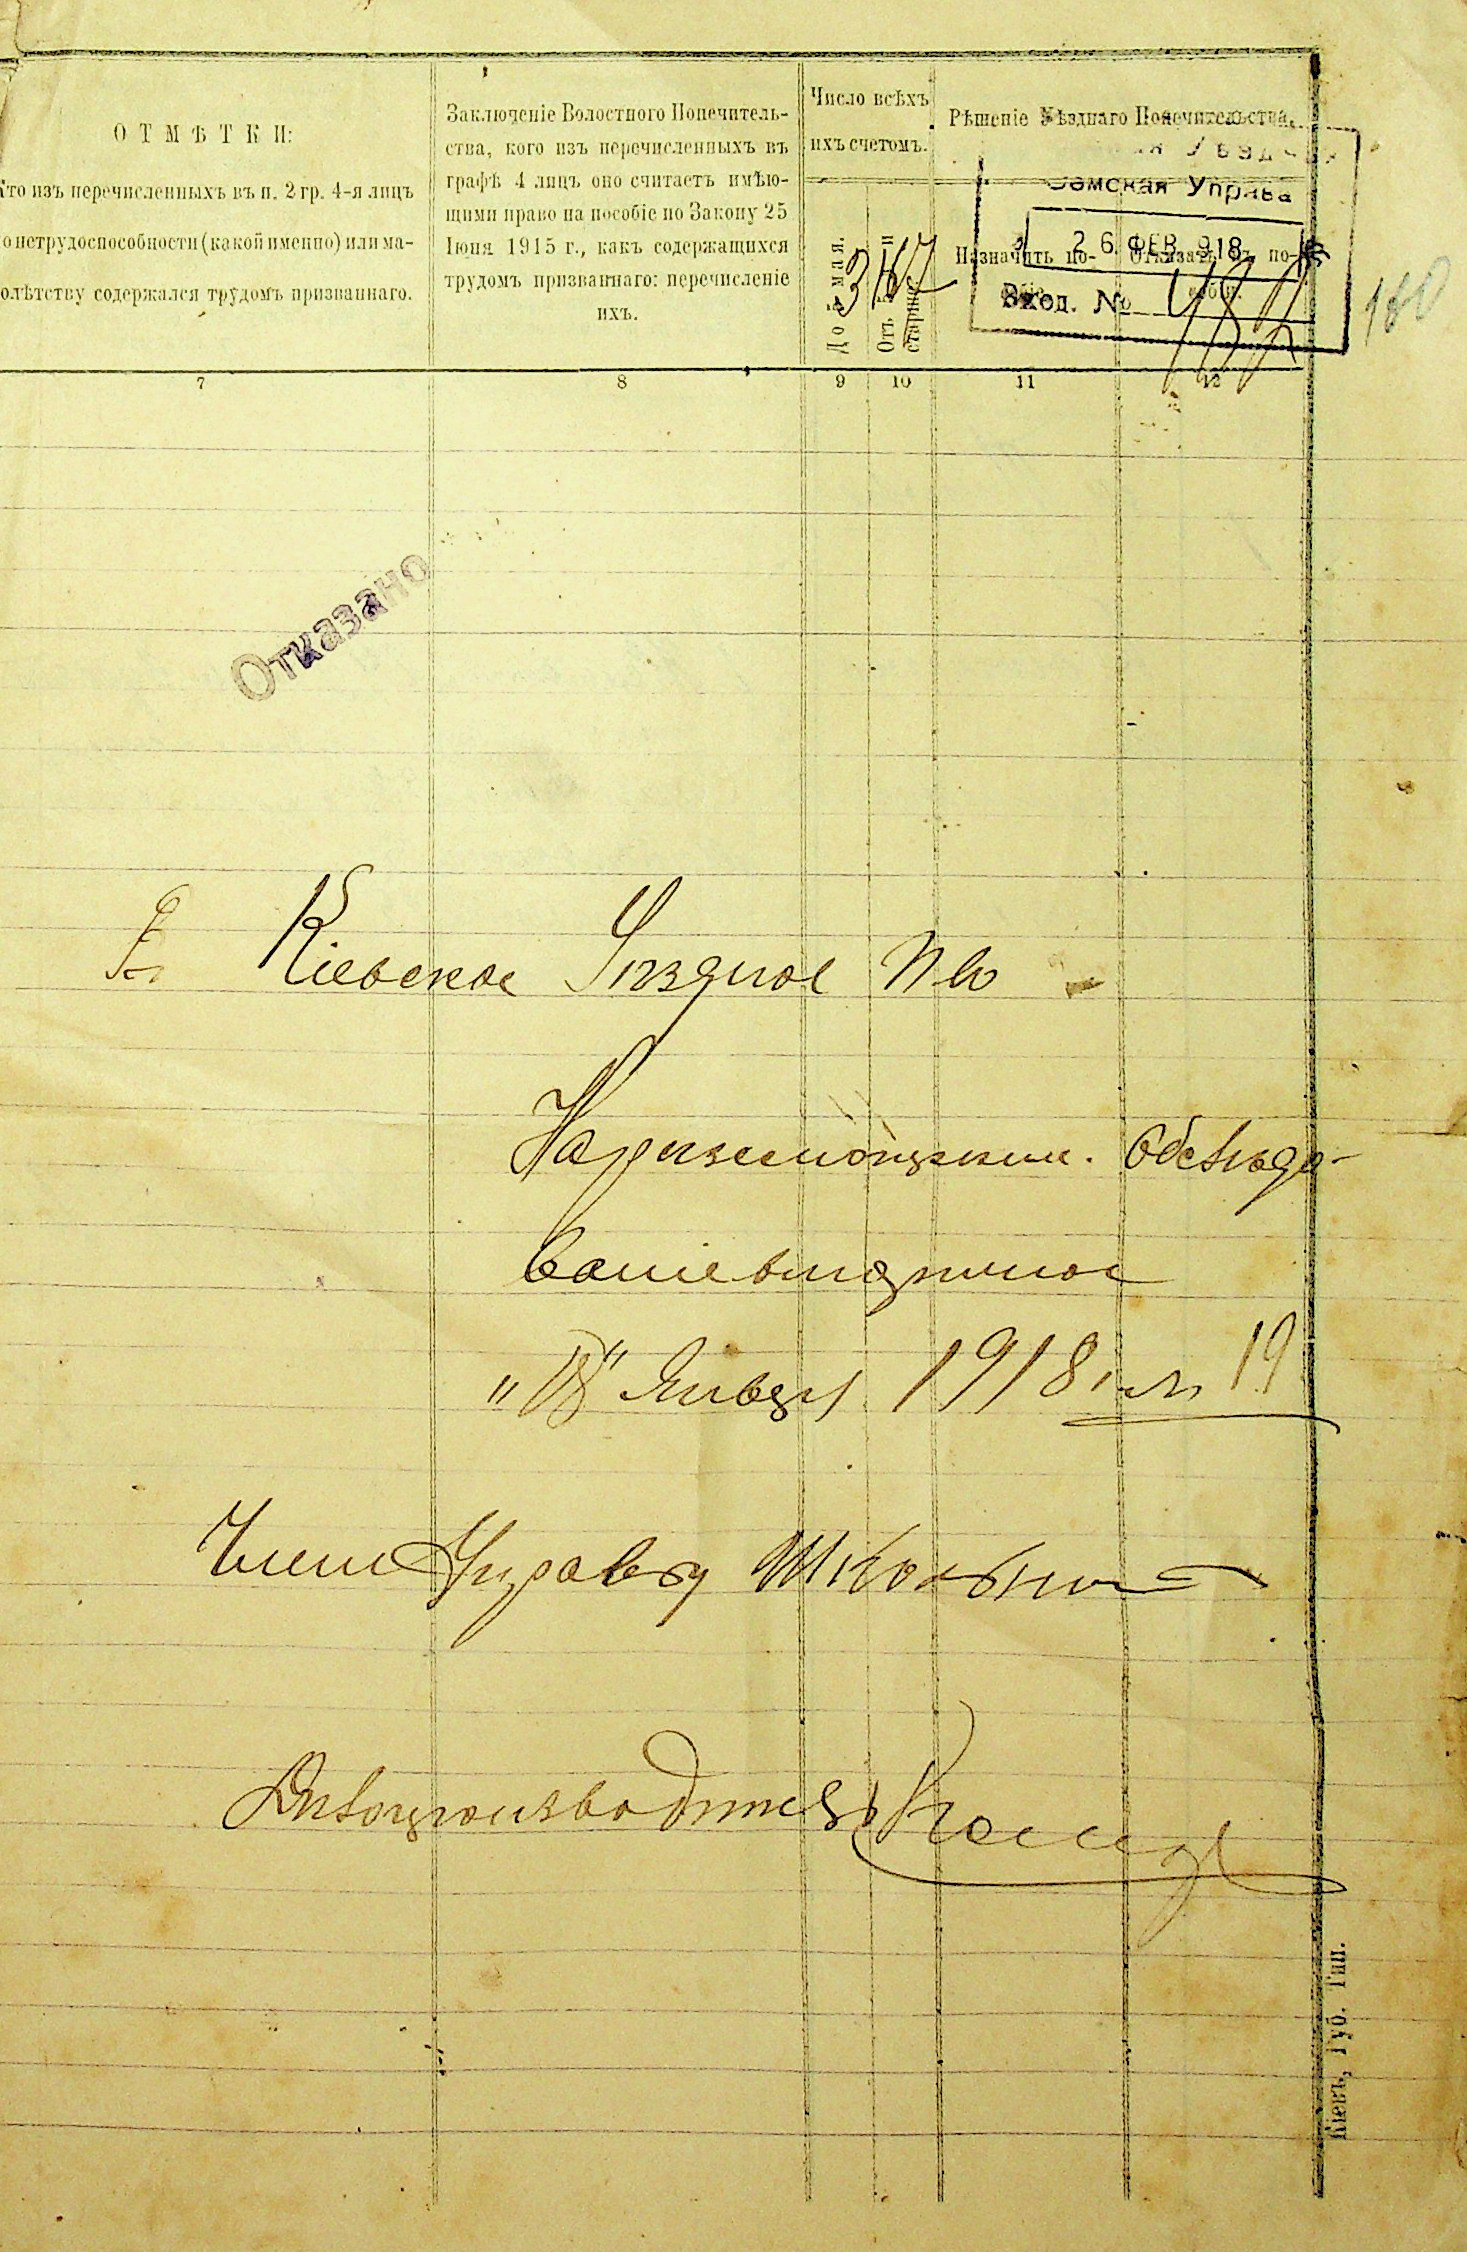 ОТМѢТКИ:
Кто изъ перечисленныхъ въ п. 2 гр. 4-я лицъ
о нетрудоспособности (какой именно) или ма-
олѣтству содержался трудомъ призваннаго.
Заключеніе Волостного Попечитель-
ства, кого изъ перечисленныхъ въ
графѣ 4 лицъ оно считаетъ имѣю-
щими право на пособіе по Закону 25
Іюня 1915 г., какъ содержащихся
трудомъ призваннаго: перечисленіе
ихъ.
Число всѣхъ
ихъ счетомъ.
До
мая.
Отъ
Рѣшеніе Уѣзднаго Попечительства.
Назначить по-
Отказать въ по-
Земская Управа
26 ФЕВ 918
Вход. №
180
7 8 9 10 11 12
Отказано
Кіевское Уѣздное
Обслѣдо-
ваніе
Января 1918 19
Членъ Управы
Дѣлопроизводитель
Кіевъ, Губ. Тип.